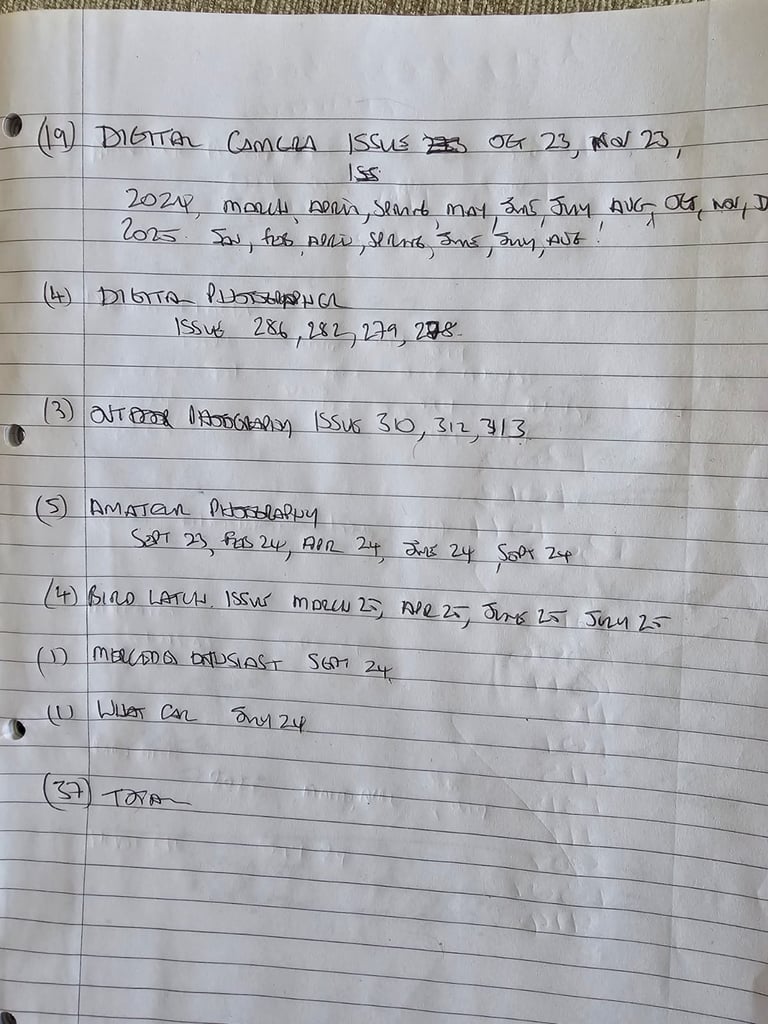 (19) DIGITAL CAMERA ISSUE OCT 23, NOV 23,
ISS
2024, MARCH, APRIL, SPRING, MAY, JUNE, JULY, AUG, OCT, NOV, D
2025. JAN, FEB, APRIL, SPRING, JUNE, JULY, AUG.
(4) DIGITAL PHOTOGRAPHER
ISSUE 286, 282, 279, 278.
(3) OUTDOOR PHOTOGRAPHY ISSUE 310, 312, 313
(5) AMATEUR PHOTOGRAPHY
SEPT 23, FEB 24, APR 24, JUNE 24, SEPT 24
(4) BIRD WATCH. ISSUE MARCH 25, APR 25, JUNE 25 JULY 25
(1) MERCEDES ENTUSIAST SEPT 24
(1) WHAT CAR JULY 24
(37) TOTAL